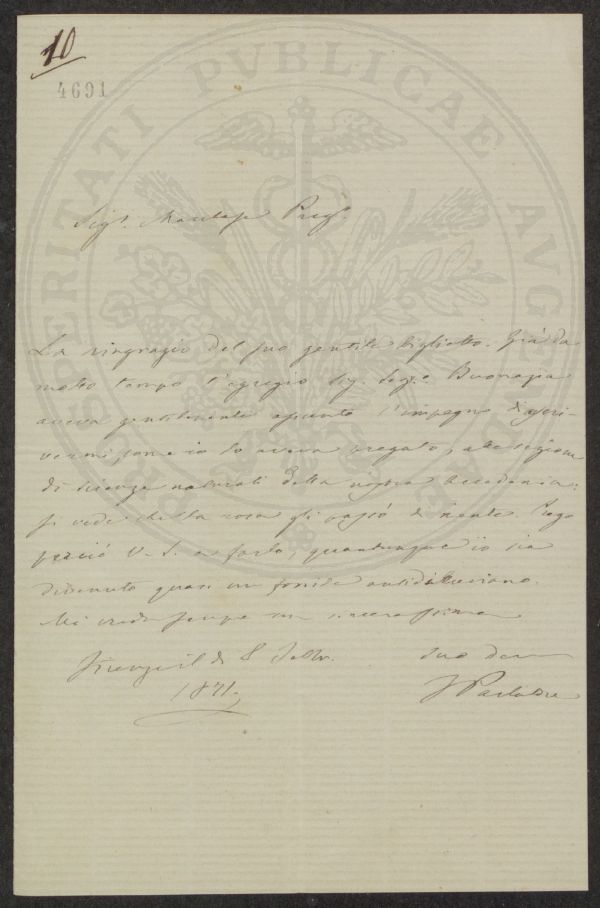 10
4691
PROSPERITATI PUBLICAE AUGENDAE
Sigr. Prof.
La ringrazio del suo gentile biglietto. Già da
molto tempo l'egregio Sig. Buonazia
aveva gentilmente assunto l'impegno di
vermi, come io lo aveva pregato, alla sezione
di scienze naturali della nostra Accademia:
si vede che la cosa gli passò di mente. Prego
perciò V. S. a farlo, quantunque io sia
divenuto quasi un fossile antidiluviano.
Mi creda sempre con
Firenze il dì 8 Febbr.
1871.
suo dev
Parlatore